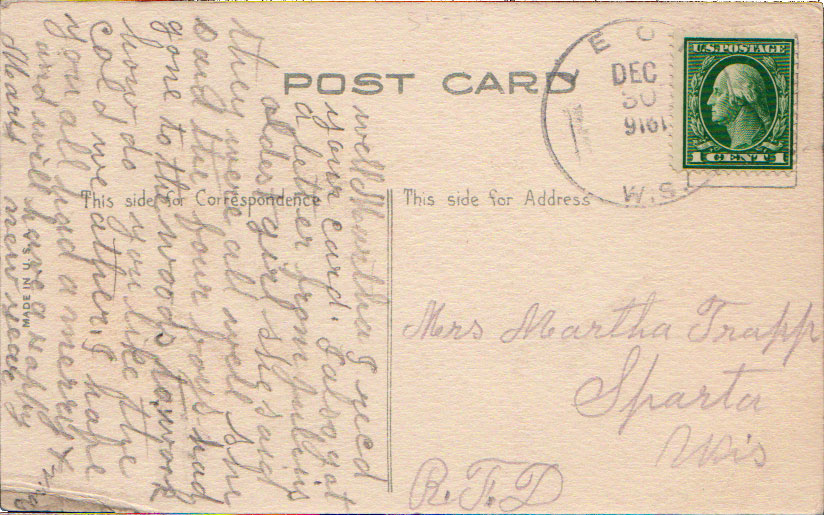 POST CARD
This side for Correspondence
This side for Address
MADE IN U.S.A.
U.S. POSTAGE
1 CENT 1
DEC
30
W.S.
well Martha I recd
your card. I also got
a letter from
oldest girl she said
they were all well she
said the four boys had
gone to the woods to work
how do you like the
cold weather. I hope
you all had a merry x mas
and will have a happy
new year
Mrs Martha Trapp
Sparta
Wis
R.F.D